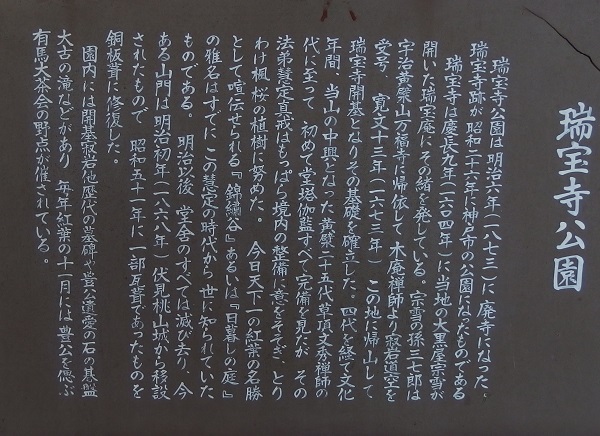 瑞宝寺公園
瑞宝寺公園は明治六年(一八七三)に廃寺になった、
瑞宝寺跡が昭和二十六年に神戸市の公園になったものである
瑞宝寺は慶長九年(一六〇四年)に当地の大黒屋宗雪が
開いた瑞宝庵にその緒を発している。宗雪の孫三七郎は
宇治黄檗山万福寺に帰依して木庵禅師より寂岩道空を
受号、寛文十三年(一六七三年)この地に帰山して
瑞宝寺開基となりその基礎を確立した。四代を経て文化
年間、当山の中興となった黄檗二十五代卓頂文秀禅師の
代に至って、初めて堂塔伽藍すべて完備を見たが、その
法弟慧定真戒はもっぱら境内の整備に意をそそぎ、とり
わけ楓、桜の植樹に努めた。今日天下一の紅葉の名勝
として喧伝せられる『錦繍谷』あるいは『日暮しの庭』
の雅名はすでにこの慧定の時代から世に知られていた
ものである。明治以後堂舎のすべては滅び去り、今
ある山門は明治初年(一八六八年)伏見桃山城から移設
されたもので昭和五十一年に一部瓦葺であったものを
銅板葺に修復した。
園内には開基寂岩他歴代の墓碑や豊公遺愛の石の碁盤
太古の滝などがあり毎年紅葉の十一月には豊公を偲ぶ
有馬大茶会の野点が催されている。